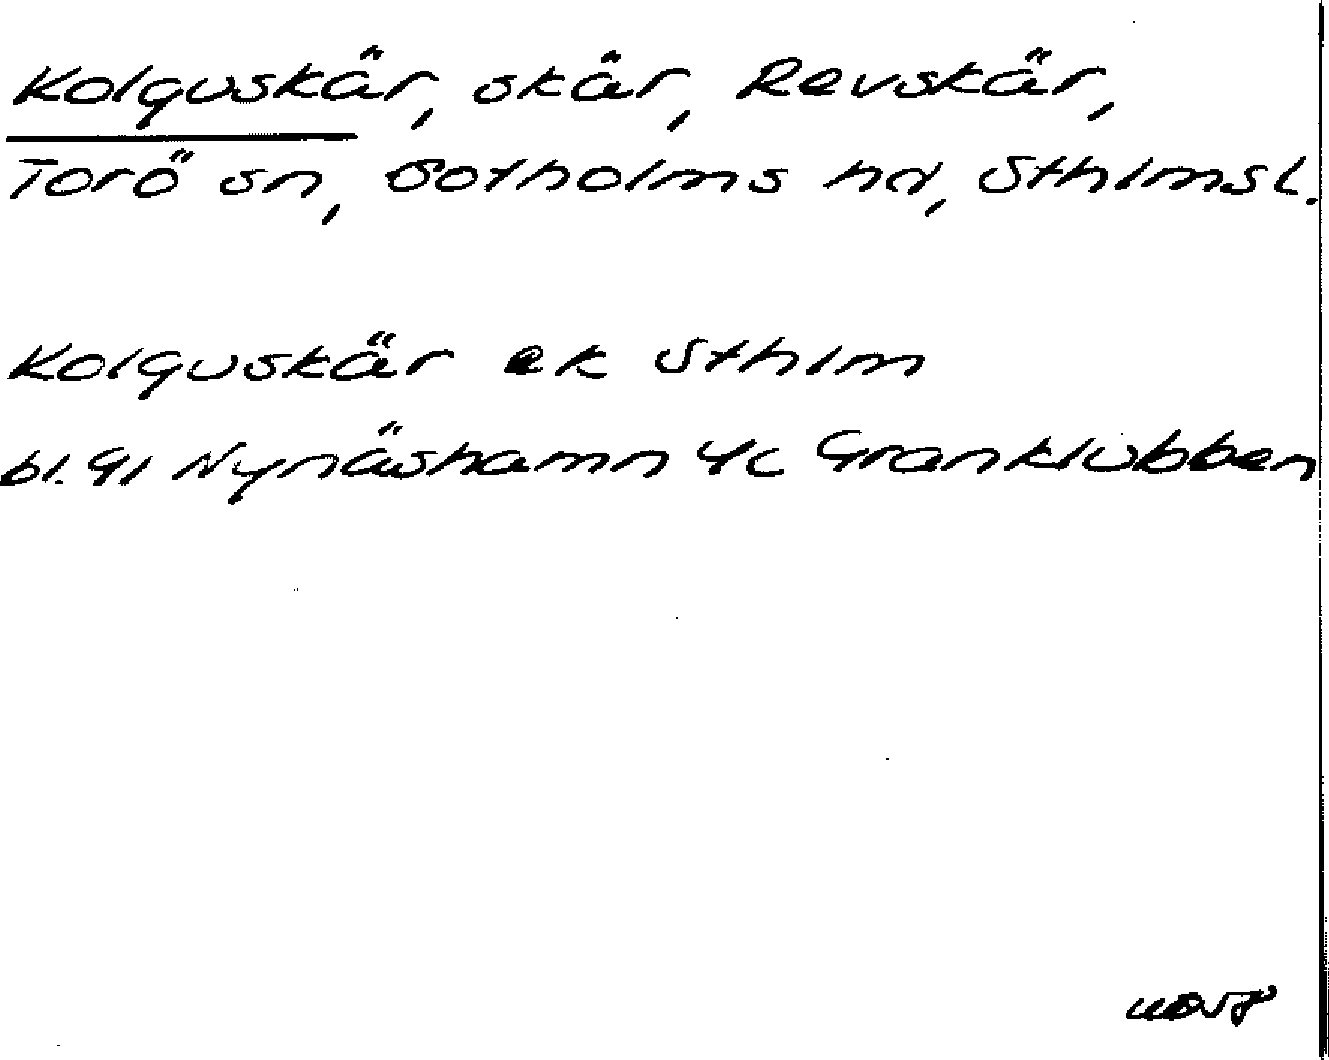 Kolguskär, skär, Revskär,
Torö sn, Sotholms hd, Sthlmsl.
Kolguskär ek Sthlm
bl. 91 Nynäshamn 4c Granklubben